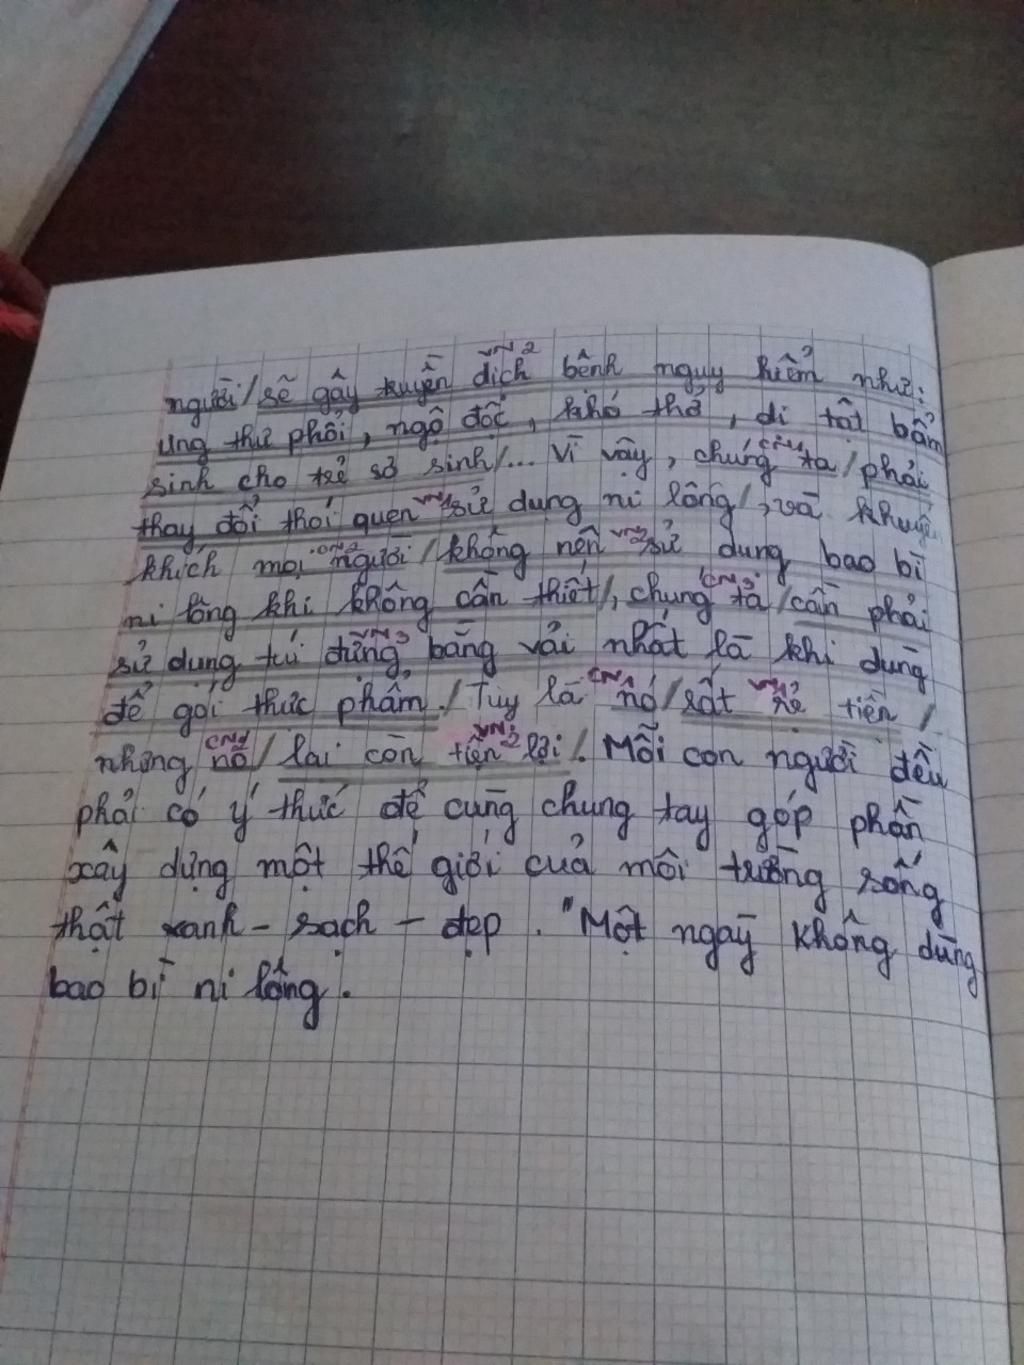 VN2
người/ sẽ gây truyền dịch bệnh nguy hiểm như:
ung thư phổi, ngộ độc, khó thở, dị tật bẩm
sinh cho trẻ sơ sinh/... Vì vậy, chúng ta/ phải
CN1
thay đổi thói quen sử dụng ni lông/, và khuyến
VN1
khích mọi người/ không nên sử dụng bao bì
CN2 VN2
ni lông khi không cần thiết/, chúng ta/ cần phải
CN3
sử dụng túi đựng bằng vải nhất là khi dùng
VN3
để gói thực phẩm./ Tuy là nó/ rất rẻ tiền/
CN1 VN1
nhưng nó/ lại còn tiện lợi/. Mỗi con người đều
CN2 VN2
phải có ý thức để cùng chung tay góp phần
xây dựng một thế giới của môi trường sống
thật xanh - sạch - đẹp. "Một ngày không dùng
bao bì ni lông.